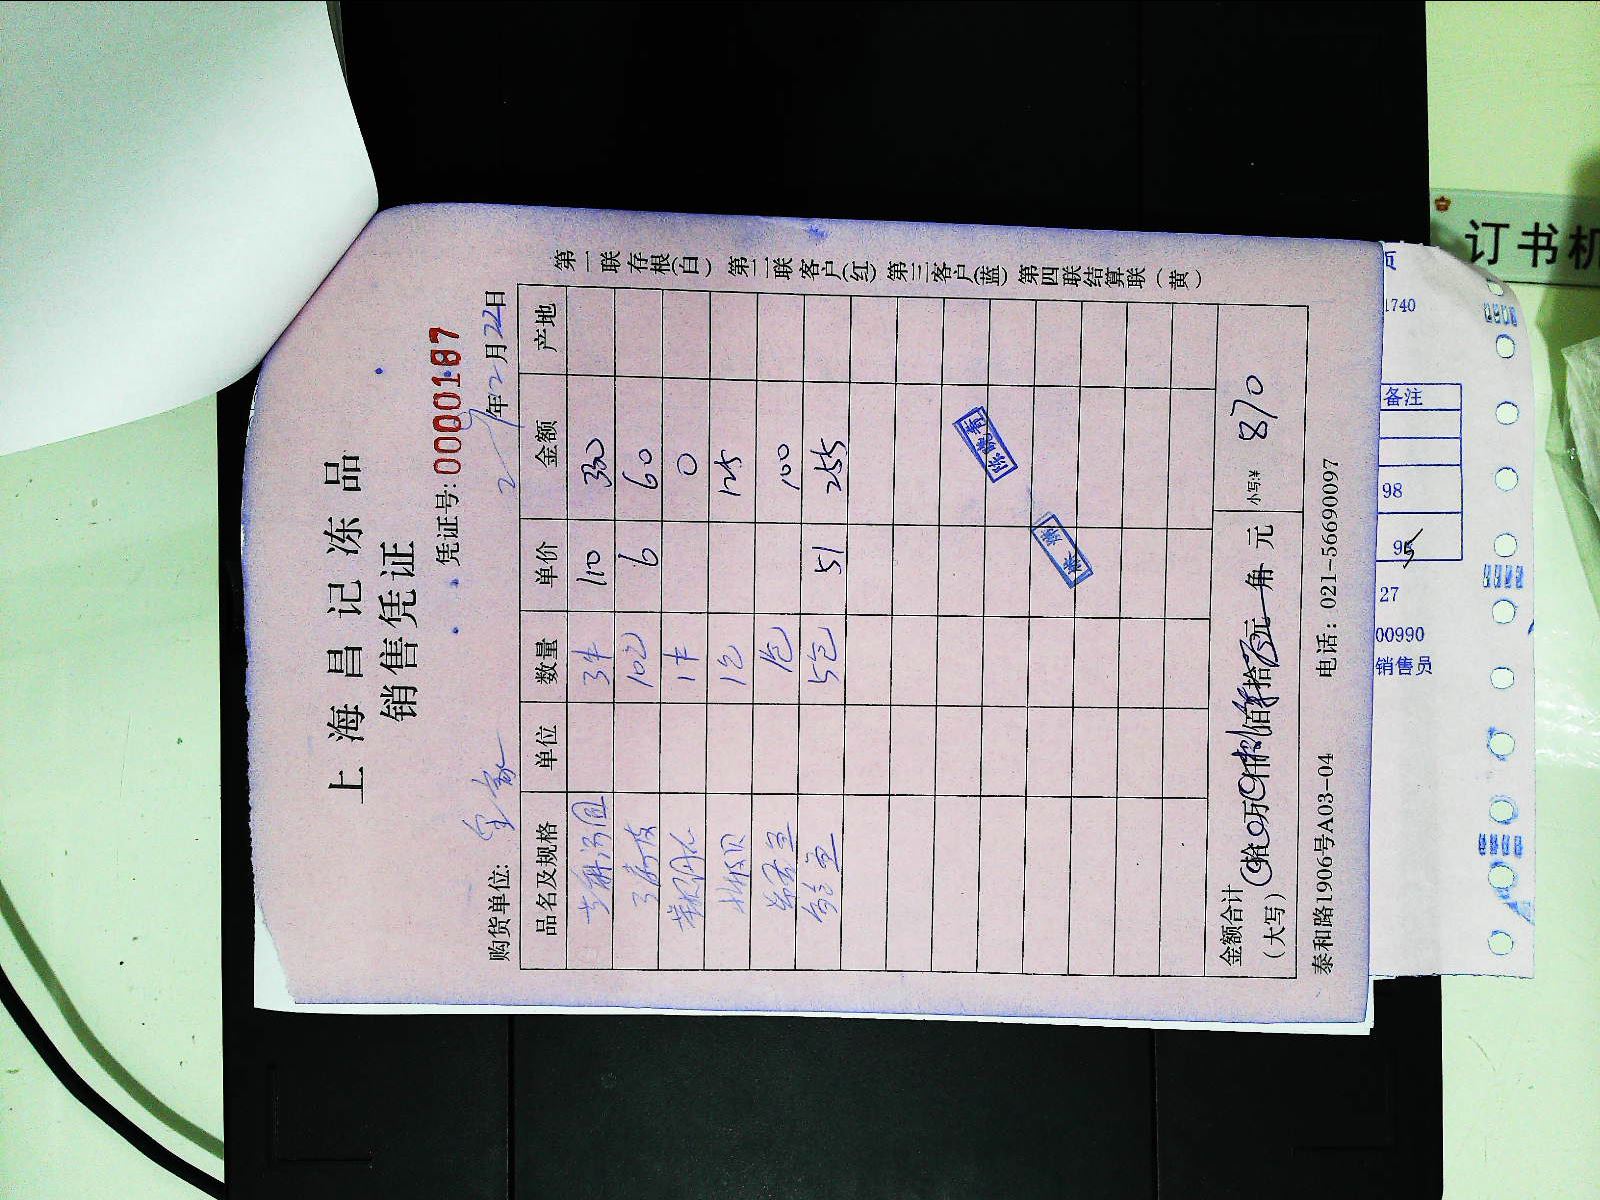 上海昌记冻品
销售凭证
凭证号: 0000187
购货单位:
年2月22日
品名及规格 单位 数量 单价 金额 产地
3件 110 330
10包 6 60
1件 0
1包 125
1包 100
鱼 5包 51 255
金额合计
(大写) 拾0万0仟捌佰柒拾元角元 小写:¥ 870
泰和路1906号A03-04 电话: 021-56690097
第一联 存根(白) 第二联 客户(红) 第三客户(蓝) 第四联结算联(黄)
订书机
页
1740
备注
98
95
27
00990
销售员